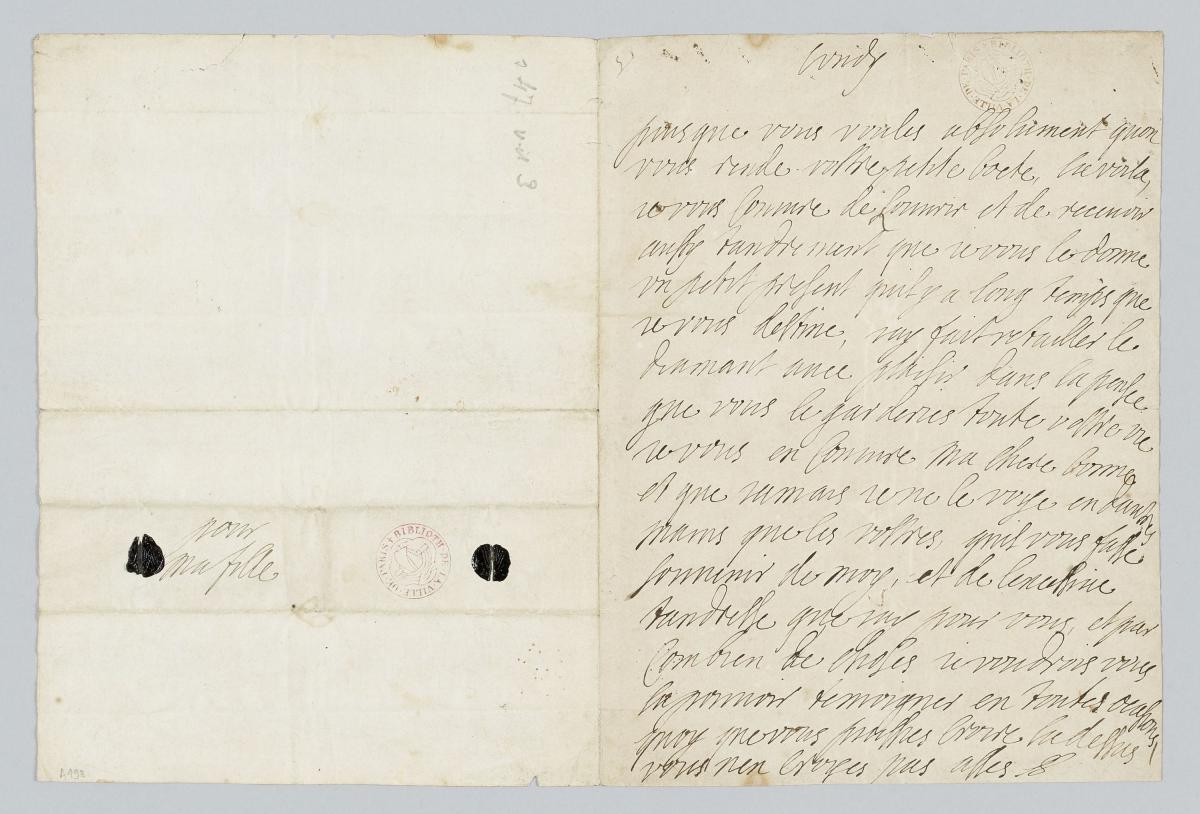 pour
ma fille
BIBLIOTH DE LA VILLE DE PARIS
A 198
BIBLIOTH DE LA VILLE DE PARIS
puis que vous voules absolument quon
vous rende vostre petite boete, la voila,
ie vous coniure de louurir et de receuoir
aussy tandrement que ie vous le donne
vn petit present quil y a long temps que
ie vous destine, iay fait retailler le
diamant auec plaisir dans la pensee
que vous le garderies toute vostre vie
ie vous en coniure ma chere bonne
et que iamais ie ne le voye en dautres
mains que les vostres, quil vous fasse
souuenir de moy, et de lexcessiue
tandresse que iay pour vous, et par
combien de choses ie voudrois vous
la pouuoir temoigner en toutes ocasions
quoy que vous puissies croire la dessus
vous nen croyes pas asses